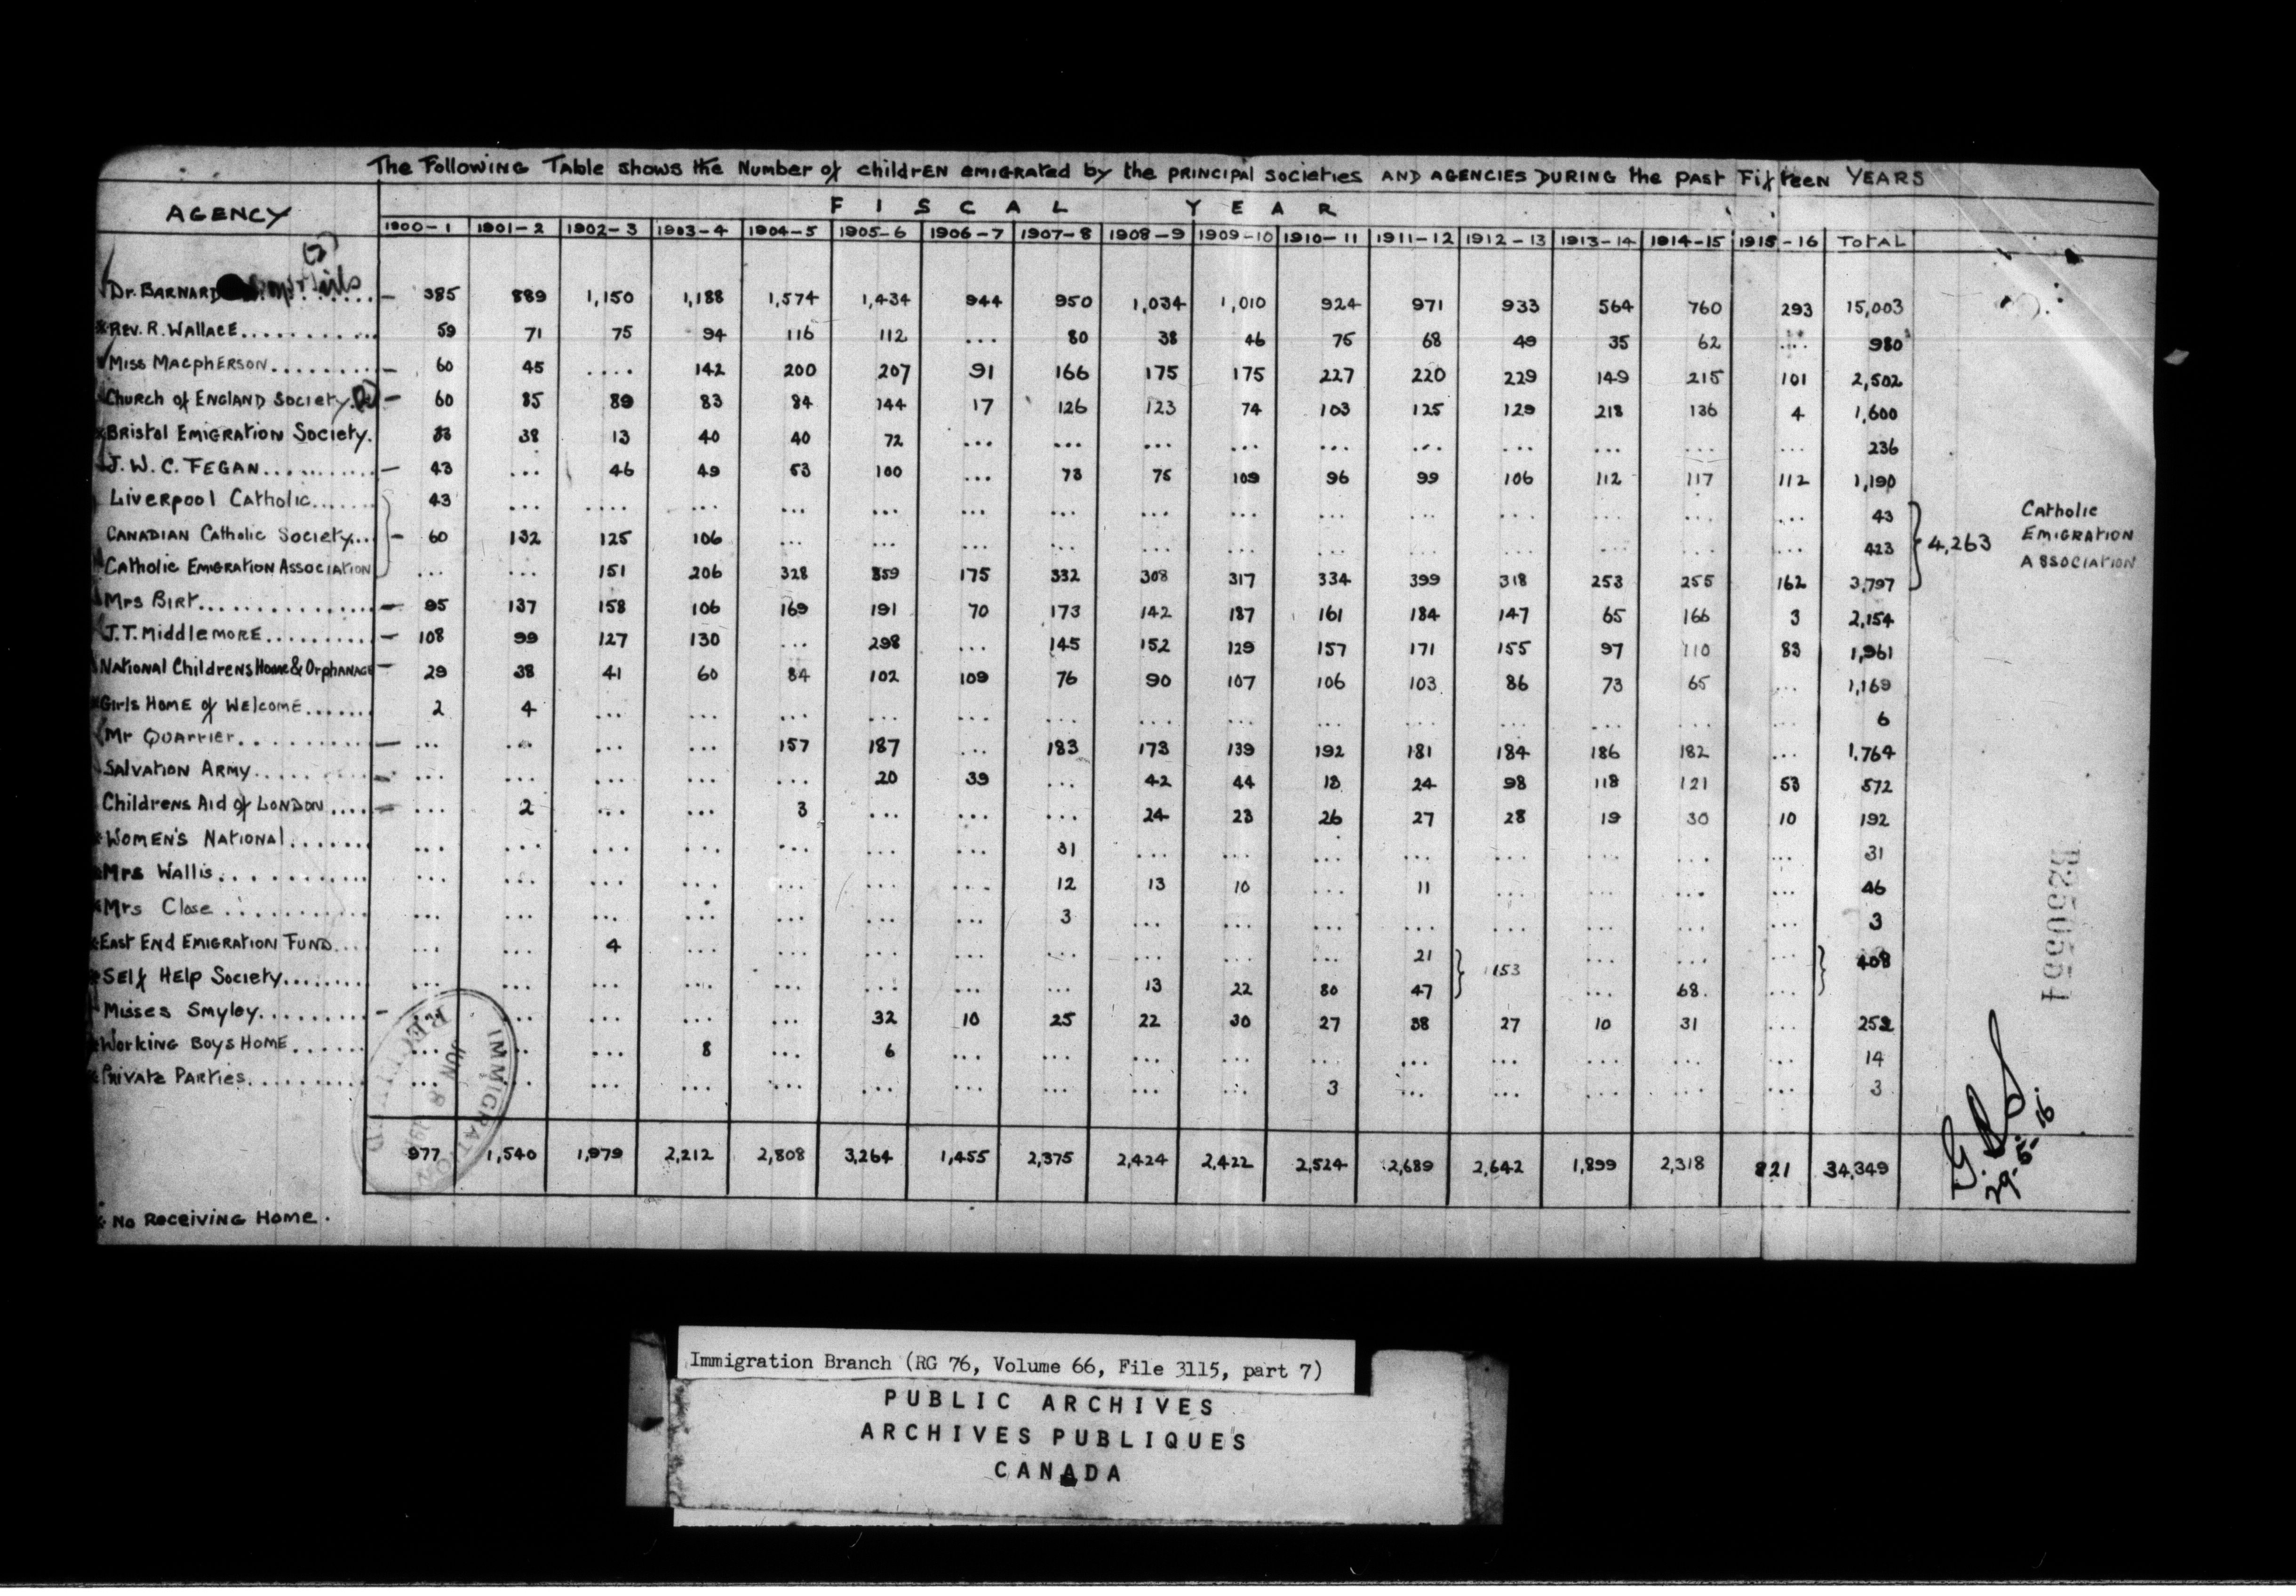 The Following Table shows the Number of children emigrated by the principal societies and agencies during the past Fifteen Years
AGENCY FISCAL YEAR
1900-1 1901-2 1902-3 1903-4 1904-5 1905-6 1906-7 1907-8 1908-9 1909-10 1910-11 1911-12 1912-13 1913-14 1914-15 1915-16 Total
(2)
Dr. Barnard Boys & Girls - 385 889 1,150 1,188 1,574 1,434 944 950 1,034 1,010 924 971 933 564 760 293 15,003
* Rev. R. Wallace............ 59 71 75 94 116 112 ... 80 38 46 75 68 49 35 62 .... 980
Miss Macpherson......... - 60 45 .... 142 200 207 91 166 175 175 227 220 229 149 215 101 2,502
Church of England Society. (2) - 60 85 89 83 84 144 17 126 123 74 103 125 129 218 136 4 1,600
* Bristol Emigration Society. 33 38 13 40 40 72 ... ... ... ... ... ... ... ... ... ... 236
J. W. C. Fegan........... - 43 ... 46 49 53 100 ... 73 75 109 96 99 106 112 117 112 1,190
Liverpool Catholic....... 43 ... .... ... ... ... ... ... ... ... ... ... ... ... ... ... 43 Catholic
Canadian Catholic Society... - 60 132 125 106 ... ... ... ... ... ... ... ... ... ... ... ... 423 } 4,263 Emigration
Catholic Emigration Association ... ... 151 206 328 259 175 332 308 317 334 399 318 253 255 162 3,797 Association
Mrs Birt............... - 95 137 158 106 169 191 70 173 142 187 161 184 147 65 166 3 2,154
J. T. Middlemore.......... - 108 99 127 130 ... 298 ... 145 152 129 157 171 155 97 110 83 1,961
National Childrens Home & Orphanage - 29 38 41 60 84 102 109 76 90 107 106 103 86 73 65 ... 1,169
* Girls Home of Welcome....... 2 4 ... ... ... ... ... ... ... ... ... ... ... ... ... ... 6
Mr Quarrier.......... - ... ... ... ... 157 187 ... 183 173 139 192 181 184 186 182 ... 1,764
Salvation Army.......... - ... ... ... ... ... 20 39 ... 42 44 18 24 98 118 121 53 572
Childrens Aid of London .... - ... 2 ... ... 3 ... ... ... 24 23 26 27 28 19 30 10 192
* Women's National....... ... ... ... ... ... ... ... 31 ... ... ... ... ... ... ... ... 31
* Mrs Wallis........... ... ... ... ... ... ... ... 12 13 10 ... 11 ... ... ... ... 46
* Mrs Close ........... ... ... ... ... ... ... ... 3 ... ... ... ... ... ... ... ... 3
* East End Emigration Fund... ... ... 4 ... ... ... ... ... ... ... ... 21 } 153 ... ... ... } 408
* Self Help Society........ ... ... ... ... ... ... ... ... 13 22 80 47 ... 68 ...
Misses Smyley......... - ... ... ... ... ... 32 10 25 22 30 27 38 27 10 31 ... 252
* Working Boys Home...... ... ... ... 8 ... 6 ... ... ... ... ... ... ... ... ... ... 14
* Private Parties.......... ... ... ... ... ... ... ... ... ... ... 3 ... ... ... ... ... 3
977 1,540 1,979 2,212 2,808 3,264 1,455 2,375 2,424 2,422 2,524 2,689 2,642 1,899 2,318 821 34,349
* No Receiving Home.
29-5-16
IMMIGRATION
JUN 8
Immigration Branch (RG 76, Volume 66, File 3115, part 7)
PUBLIC ARCHIVES
ARCHIVES PUBLIQUES
CANADA